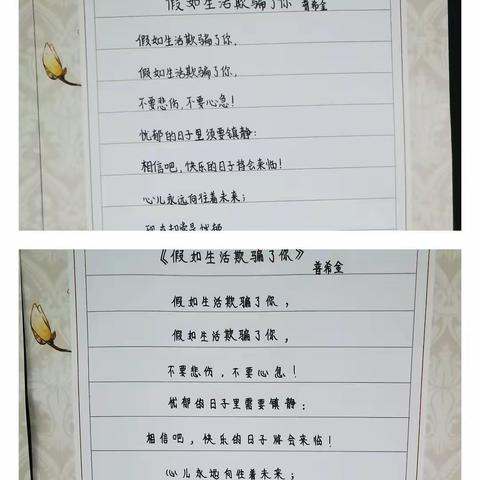 假如生活欺骗了你 普希金
假如生活欺骗了你,
假如生活欺骗了你,
不要悲伤,不要心急!
忧郁的日子里须要镇静:
相信吧,快乐的日子将会来临!
心儿永远向往着未来;
现在却常是忧郁
《假如生活欺骗了你》 普希金
假如生活欺骗了你,
假如生活欺骗了你,
不要悲伤,不要心急!
忧郁的日子里需要镇静:
相信吧,快乐的日子将会来临!
心儿永远向往着未来;